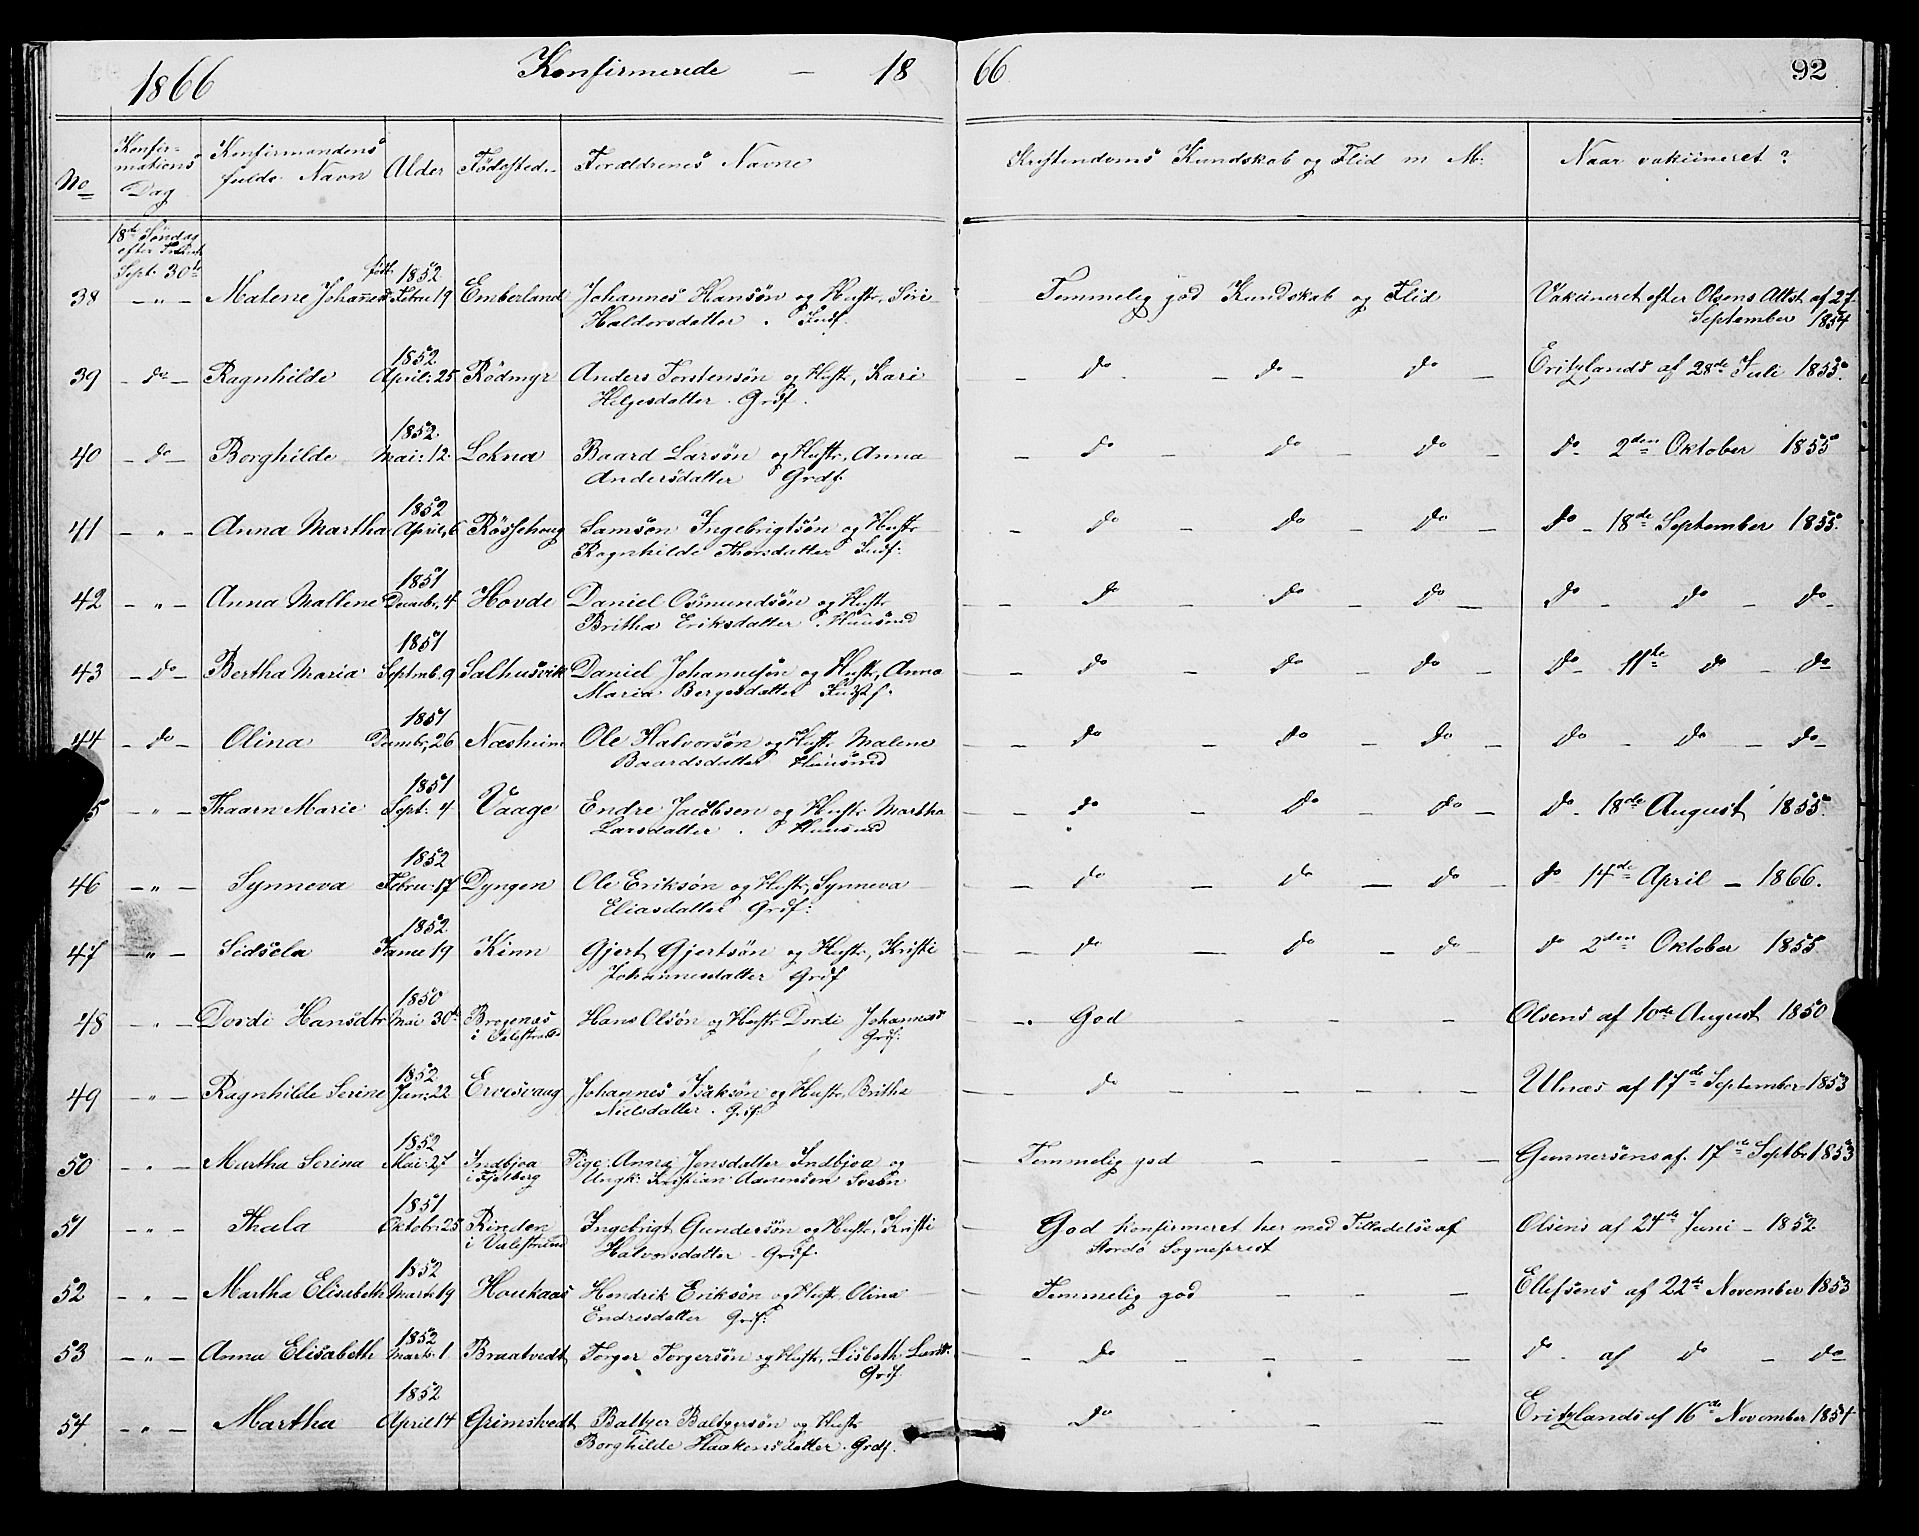 1866 Konfirmerede — 18 66 92
No Konfirmations Dag Konfirmandens fulde Navn Alder Fødested Forældrenes Navne Kristendoms Kundskab og Flid m M: Naar vakcineret?
18de Søndag
efter Trinit
Sept. 30te
38 — " — Malene Johannesd født 1852 Febru 19 Emberland Johannes Hansøn og Hustr, Siri Temmelig god Kundskab og Flid Vakcineret efter Olsens Attst af 27
Haldorsdatter . Indf. September 1854
39 — do — Ragnhilde 1852 April: 25 Rödmyr Anders Torstensøn og Hustr, Kari — do — do — do — Eritzlands af 28de Juli 1855.
Helgesdatter . Grdf.
40 — do — Borghilde 1852 Mai: 12 Lokna Baard Larsøn og Hustr, Anna — do — do — do — do 2den Oktober 1855
Andersdatter Grdf.
41 — " — Anna Martha 1852 April, 6 Røssehoug Samson Ingebrigtsøn og Hustr — do — do — do — do — 18de September 1855.
Ragnhilde Thorsdatter Indf:
42 — " — Anna Mallene 1851 Decmbr, 4 Hovde Daniel Osmundsøn og Hustr — do — do — do — do — do — do —
Britha Eriksdatter . Huusmd
43 — do — Bertha Maria 1851 Septmb. 9 Salhusvik Daniel Johannesøn og Hustr, Anna — do — do — do — do — 11te do — do
Maria Bergesdatter
44 — do — Olina 1851 Dcmbr, 26 Næsheim Ole Halvorsøn og Hustr Malene — do — do — do — do — do — do —
Baardsdatter Huusmd
5 — " — Thaarn Marie 1851 Sept: 4 Vaage Endre Jacobsen og Hustr Martha — do — do — do — do — 18de August 1855.
Larsdatter . Huusmd
46 — " — Synneva 1852 Febru: 17 Dyngen Ole Eriksøn og Hustr, Synneva — do — do — do — do 14de April — 1866.
Eliasdatter Grdf:
47 — " — Sidsela 1852 Janu 19 Kinn Gjert Gjertsøn og Hustr, Kristi — do — do — do do 2den Oktober 1855
Johannesdatter Grdf
48 — " — Dordi Hansdtr 1850 Mai 30te Hans Olsøn og Hustr Dordi Johannes — God — — — Olsens af 10de August 1850
i Grdf:
49 — " — Ragnhilde Serine 1852 Jan: 22 Ervesvaag Johannes Isaksøn og Hustr, Britha — do — — — Ulnæs af 17de September 1853
Nielsdatter . Grdf:
50 — " — Martha Serina 1852 Mai: 27 Indbjoa Pige: Anna Jensdatter Indbjoa og Temmelig god — — — — Gunnersens af. 17de Septbr 1853
i Fjelberg Ungk: Kristian Aanensen
51 — " — Thala 1851 Oktobr: 25 Rinden Ingebrigt Gundersøn og Hustr, Kristi — God Konfirmeret her med Tilladelse af Olsens af 24de Juni — 1852
i Valestrand Halvorsdatter . Grdf. Stordø Sogneprest
52 — " — Martha Elisabeth 1852 Marts 19 Houkaas Hendrik Eriksøn og Hustr. Olina — Temmelig god — — — Ellefsens af 22de November 1853
Endresdatter Grdf:
53 — " — Anna Elisabeth 1852 Marts. 1. Braatvedt Torger Torgersøn og Hustr, Lisbeth — do — — — — do . af do — do
Grdf
54 — " — Martha 1852 April 14 Grimstvedt Baltzer Baltzersøn og Hustr do — — — Eritzlands af 16de November 1851
Borghilde Haakensdatter . Grdf.